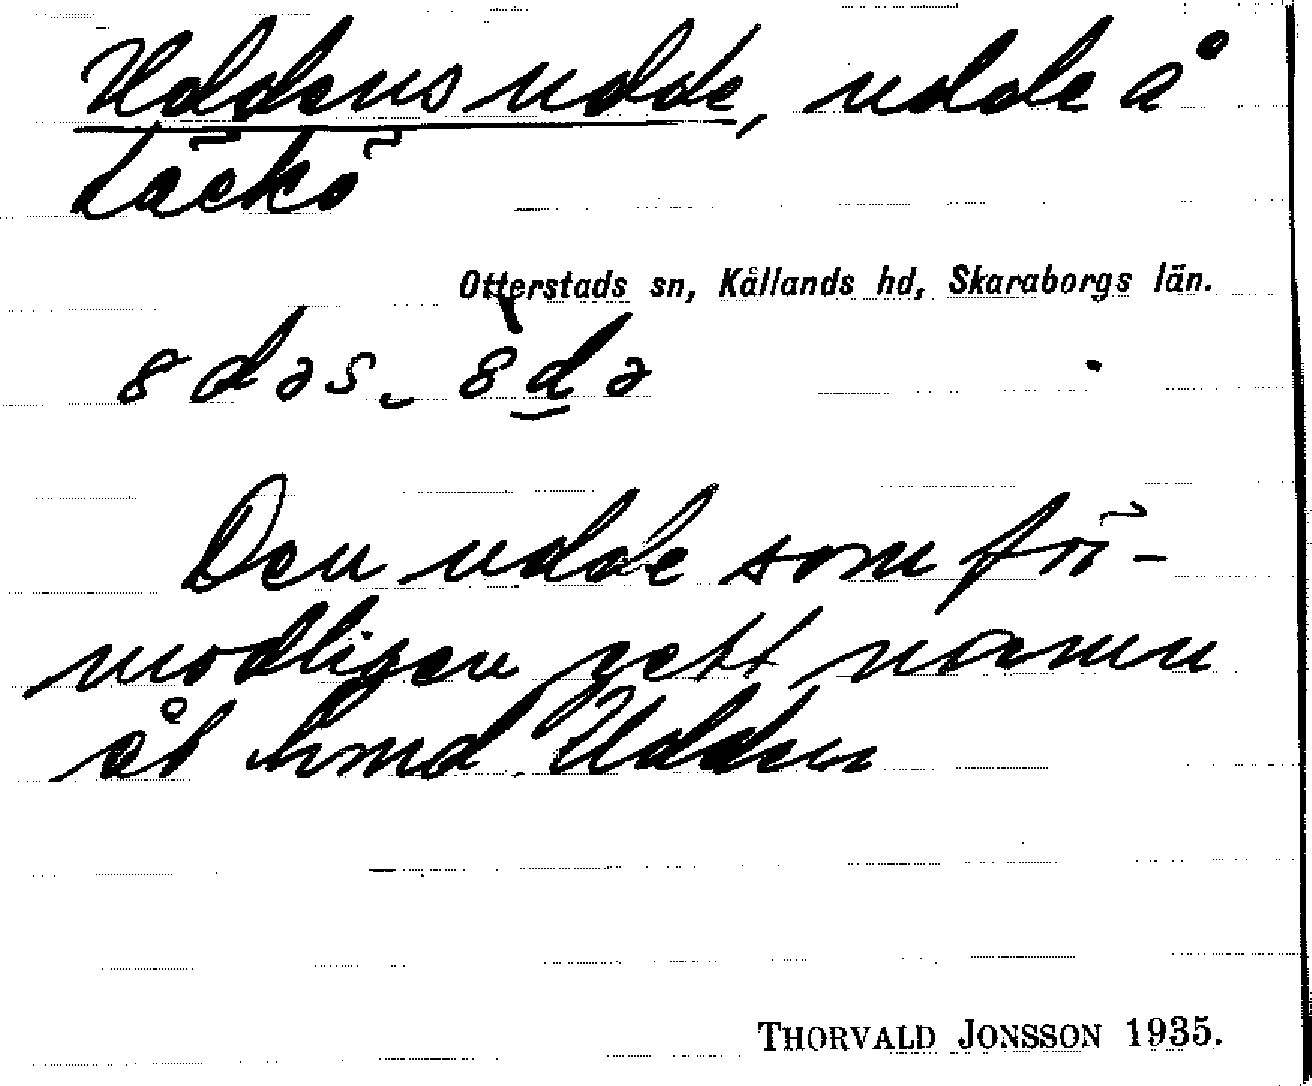 Uddens udde, udde å
Läckö
Otterstads sn, Kållands hd, Skaraborgs län.
8dəs_ 8̀d̲ə
Den udde som för-
modligen gett namn
åt hmd Udden
THORVALD JONSSON 1935.